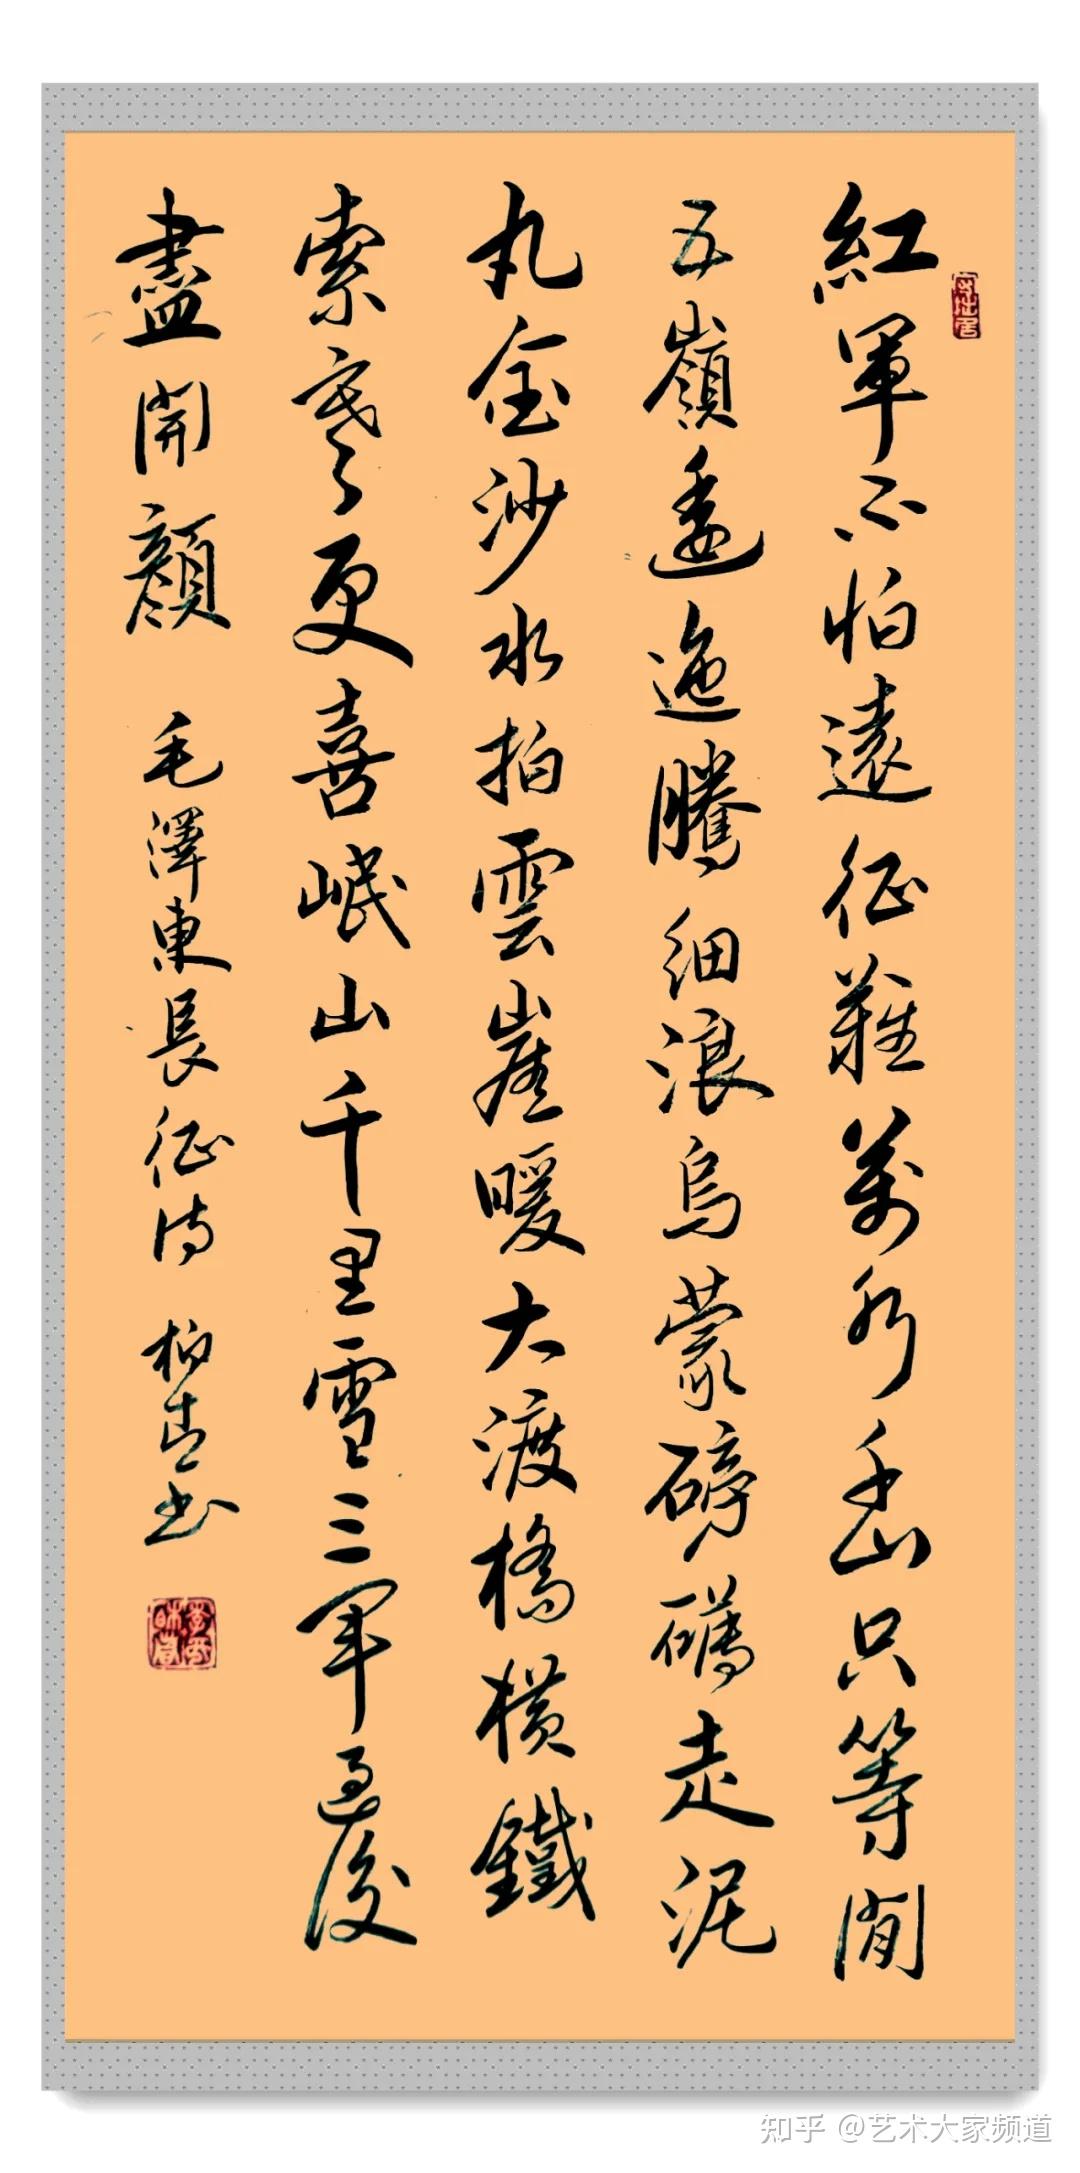 紅軍不怕遠征難萬水千山只等閒
五嶺逶迤騰細浪烏蒙磅礴走泥
丸金沙水拍雲崖暖大渡橋橫鐵
索寒更喜岷山千里雪三軍過後
盡開顏 毛澤東長征詩 柏青书
知乎 @艺术大家频道